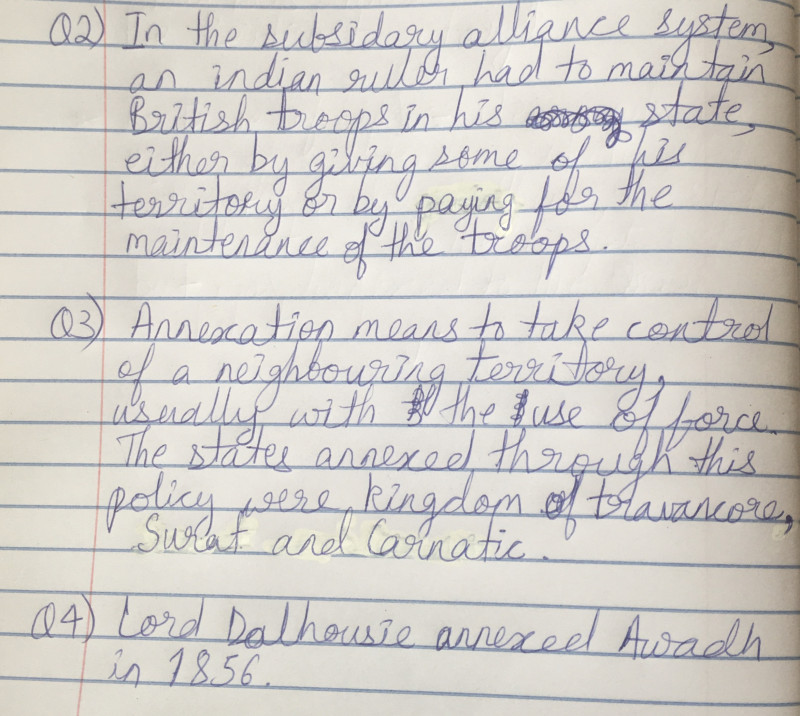 Q2) In the subsidary alliance system,
an indian ruler had to maintain
British troops in his state,
either by giving some of his
territory or by paying for the
maintenance of the troops.
Q3) Annexation means to take control
of a neighbouring territory,
usually with the use of force.
The states annexed through this
policy were kingdom of travancore,
Surat and Carnatic.
Q4) Lord Dalhousie annexed Awadh
in 1856.